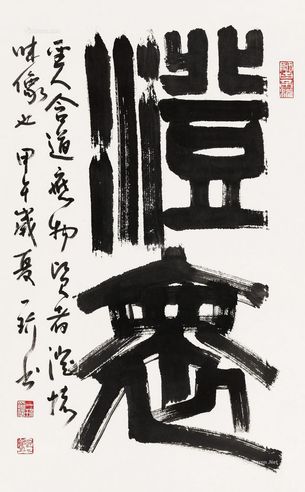 澄褱
聖人含道應物賢者澄懷
味像也 甲午歲夏 一 書